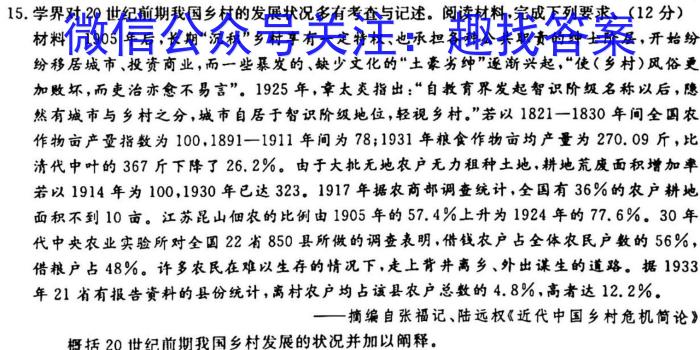 15.学界对20世纪前期我国乡村的发展状况多有考查与记述。阅读材料,完成下列要求。(12分)
微信公众号关注:趣找答案
材料 1905年后,长期"沉积"乡村享有一定特权,也承担 职责的绅士阶层,开始纷
纷移居城市、投资商业,而一些暴发的、缺少文化的"土豪劣绅"逐渐兴起,"使(乡村)风俗更
加败坏,而吏治亦愈不易言"。1925年,章太炎指出:"自教育界发起智识阶级名称以后,隐
然有城市与乡村之分,城市自居于智识阶级地位,轻视乡村。"若以1821—1830年间全国农
作物亩产量指数为100,1891—1911年间为78;1931年粮食作物亩均产量为270.09斤,比
清代中叶的367斤下降了26.2%。由于大批无地农户无力租种土地,耕地荒废面积增加率
若以1914年为100,1930年已达323。1917年据农商部调查统计,全国有36%的农户耕地
面积不到10亩。江苏昆山佃农的比例由1905年的57.4%上升为1924年的77.6%。30年
代中央农业实验所对全国22省850县所做的调查表明,借钱农户占全体农民户数的56%,
借粮户占48%。许多农民在难以生存的情况下,走上背井离乡、外出谋生的道路。据1933
年21省有报告资料的县份统计,离村农户均占该县农户总数的4.8%,高者达12.2%。
——摘编自张福记、陆远权《近代中国乡村危机简论》
概括20世纪前期我国乡村发展的状况并加以阐释。